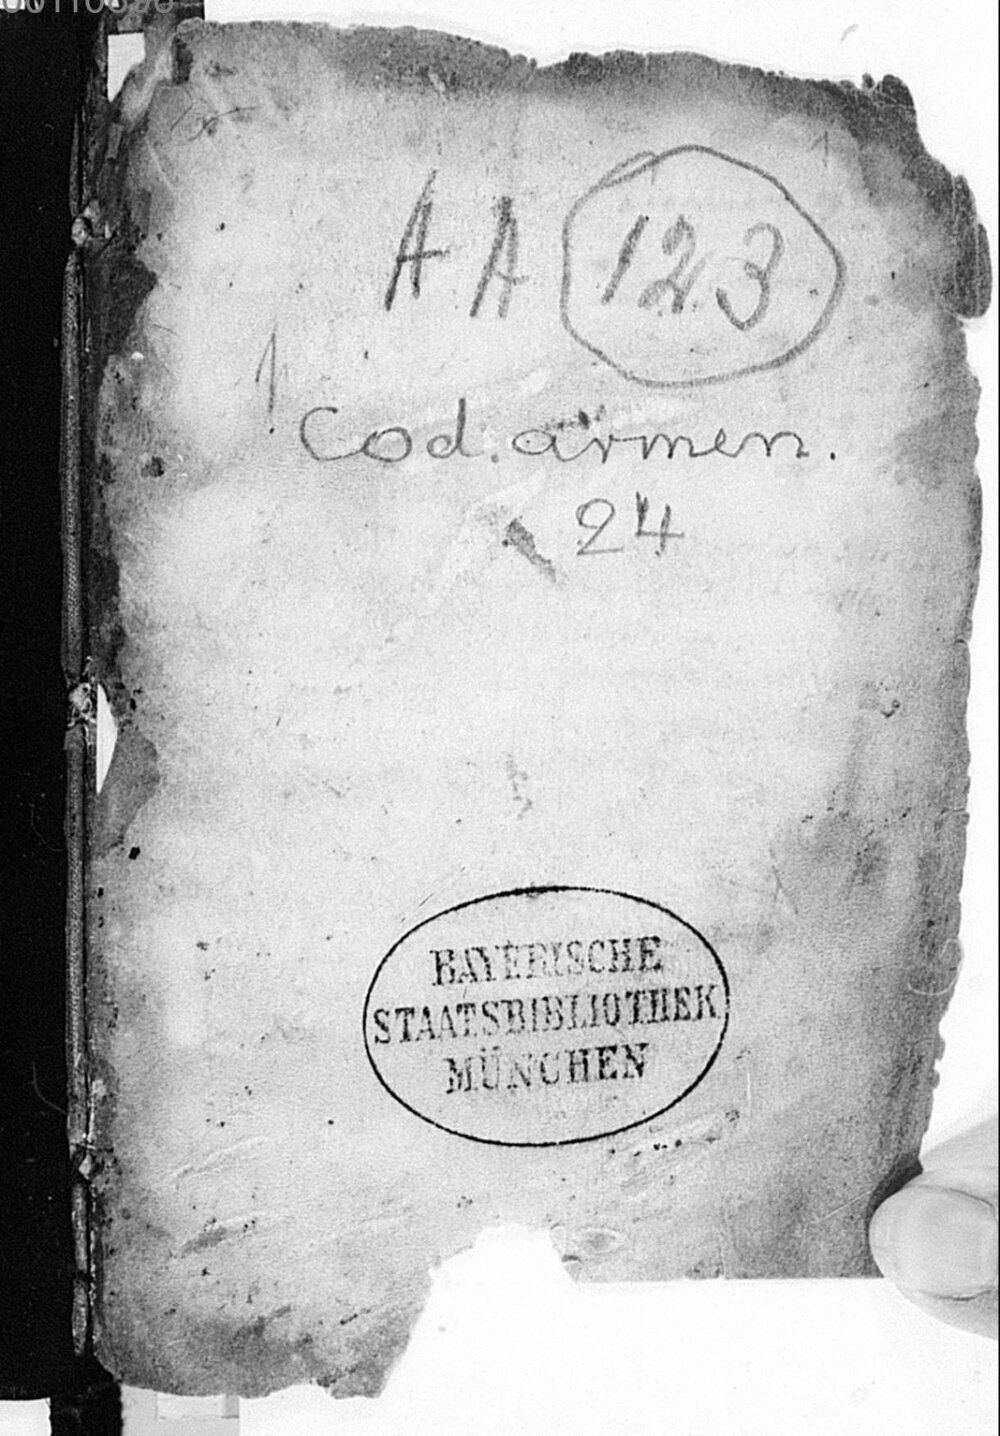 00110896
1
A A 123
Cod. armen.
24
BAYERISCHE
STAATSBIBLIOTHEK
MÜNCHEN